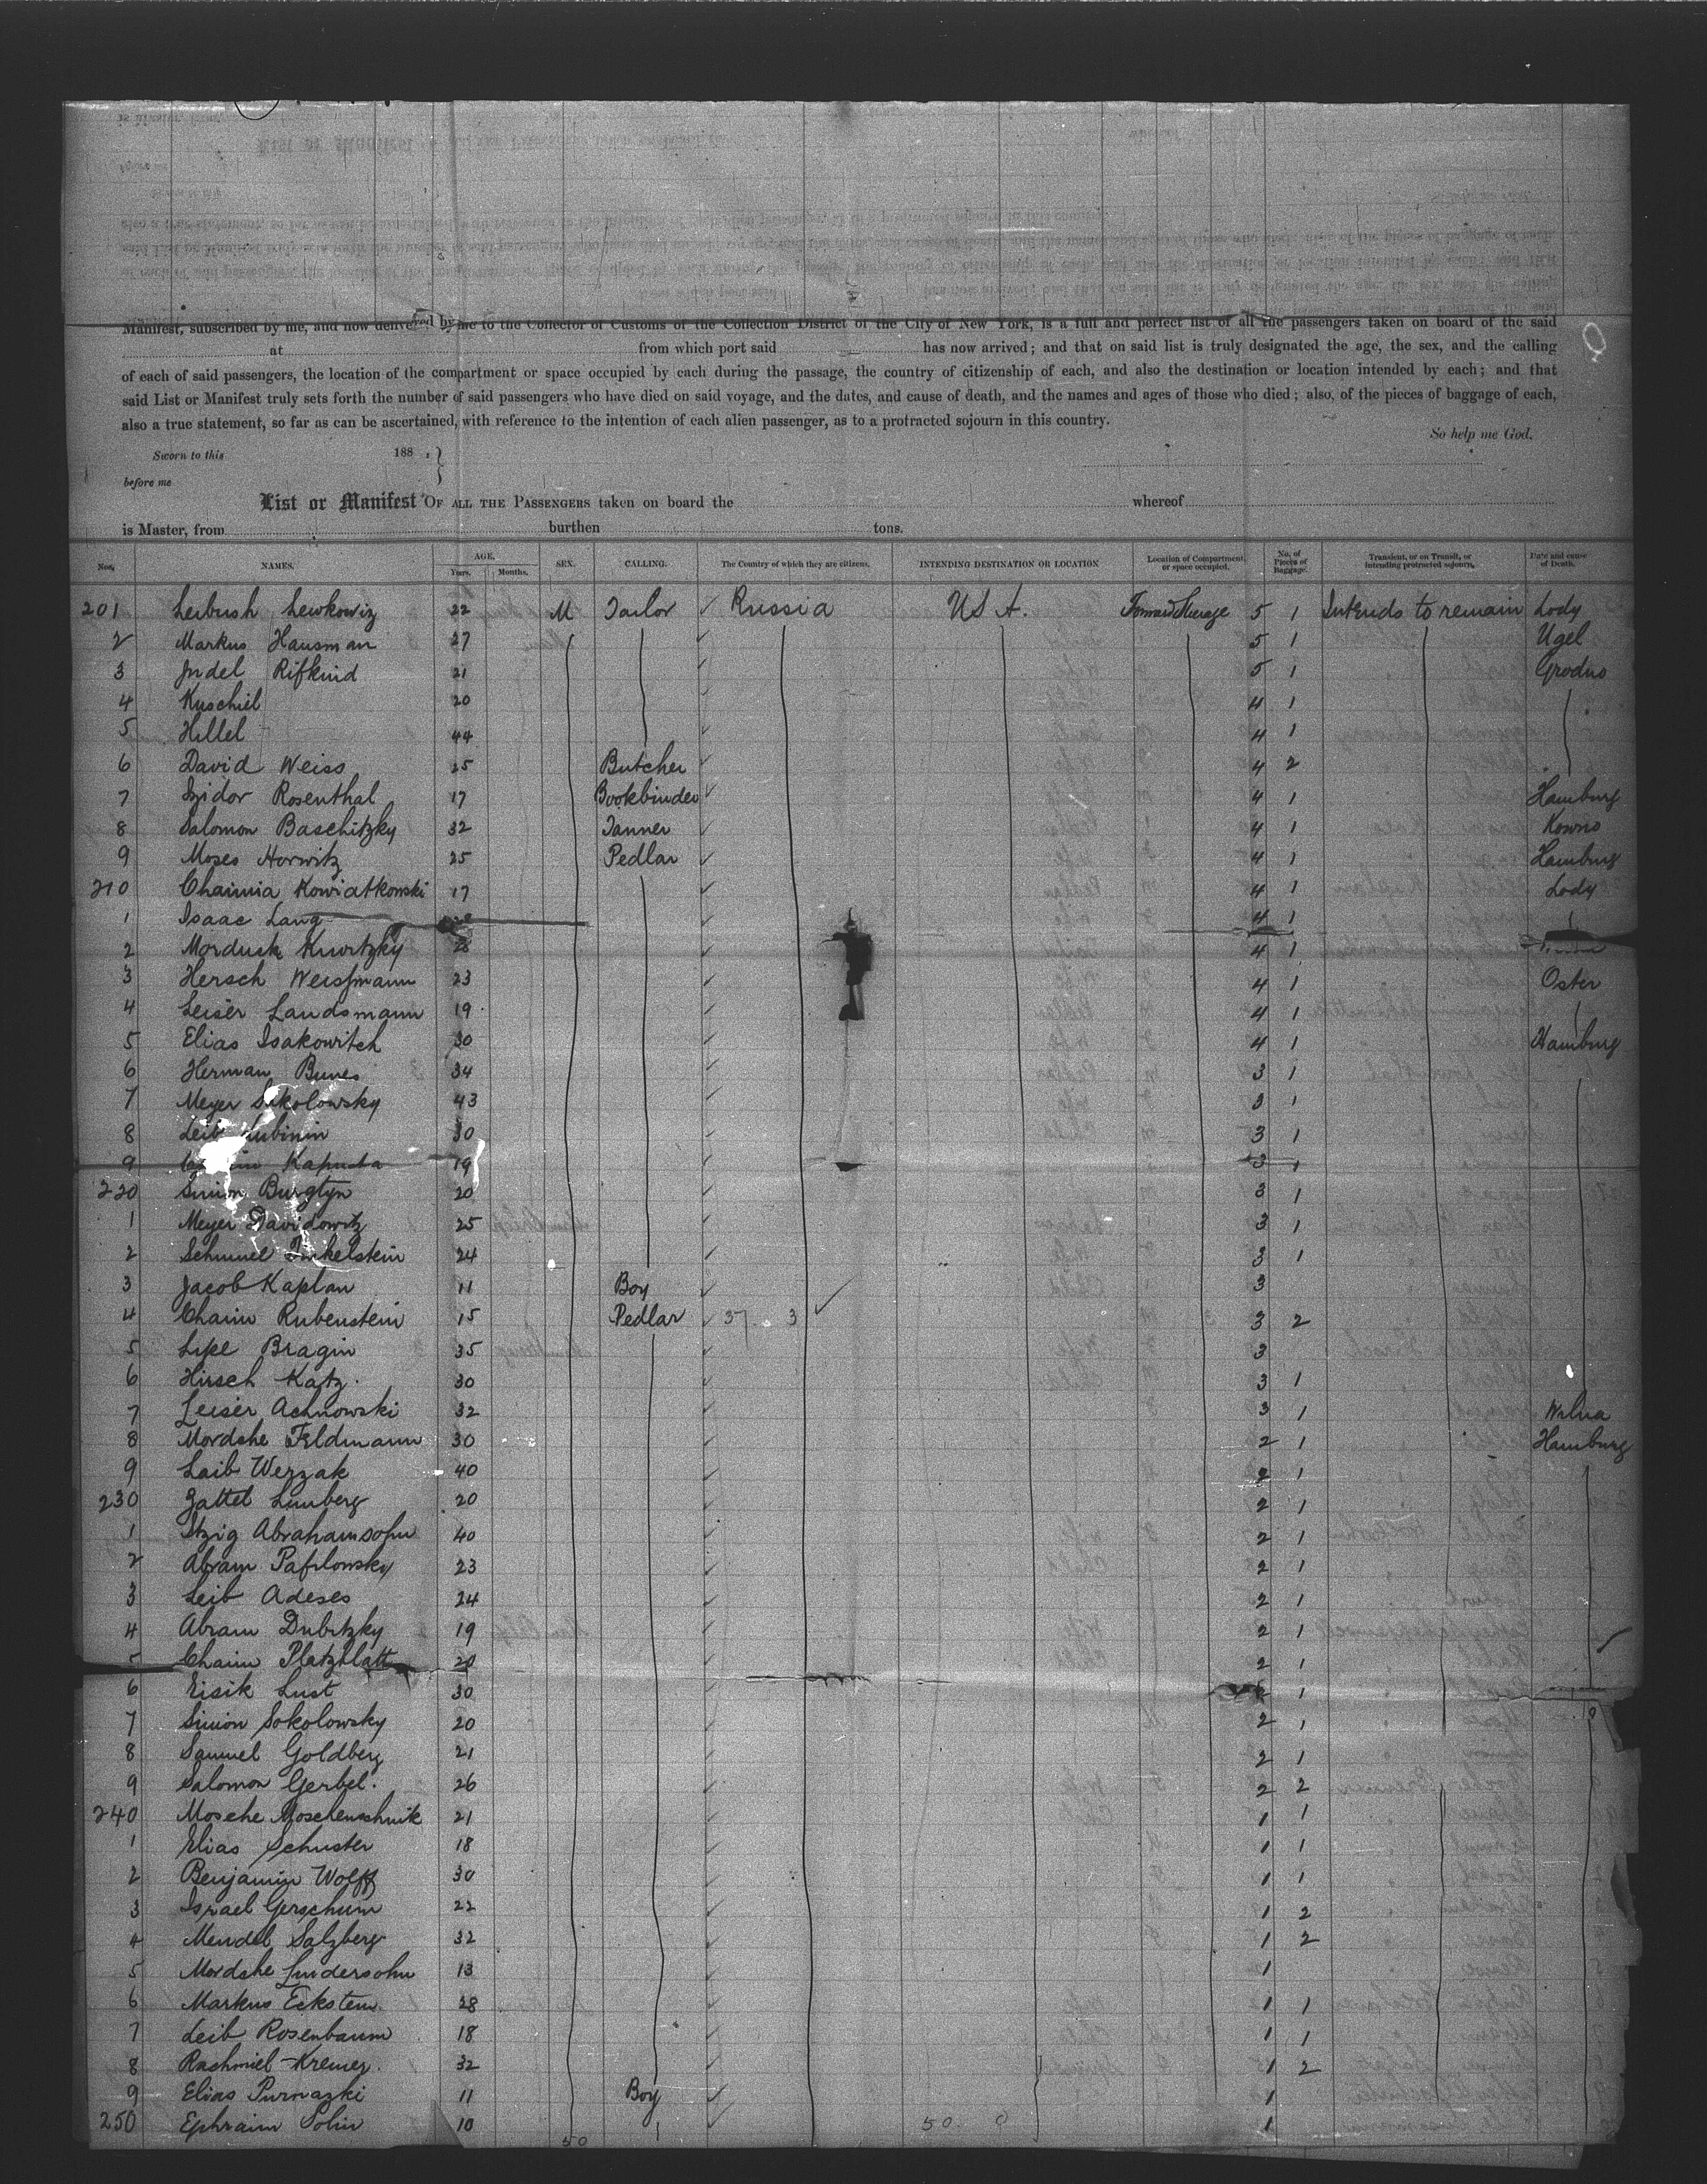 Manifest, subscribed by me, and now delivered by me to the Collector of Customs of the Collection District of the City of New York, is a full and perfect list of all the passengers taken on board of the said
at from which port said has now arrived; and that on said list is truly designated the age, the sex, and the calling
of each of said passengers, the location of the compartment or space occupied by each during the passage, the country of citizenship of each, and also the destination or location intended by each; and that
said List or Manifest truly sets forth the number of said passengers who have died on said voyage, and the dates, and cause of death, and the names and ages of those who died; also, of the pieces of baggage of each,
also a true statement, so far as can be ascertained, with reference to the intention of each alien passenger, as to a protracted sojourn in this country.
So help me God.
Sworn to this 188 ,
before me
List or Manifest OF ALL THE PASSENGERS taken on board the whereof
is Master, from burthen tons.
Nos. NAMES. AGE. Years. Months. SEX. CALLING. The Country of which they are citizens. INTENDING DESTINATION OR LOCATION Location of Compartment, or space occupied. No. of Pieces of Baggage. Transient, or on Transit, or intending protracted sojourn. Date and cause of Death.
201 Leibush Lewkowiz 22 M Tailor Russia USA. Forward Steerage 5 1 Intends to remain Lody
2 Markus Hausman 27 5 1 Ugel
3 Judel Rifkind 21 5 1 Grodno
4 Kuschiel 20 4 1
5 Hillel 44 4 1
6 David Weiss 25 Butcher 4 2
7 Izidor Rosenthal 17 Bookbinder 4 1 Hamburg
8 Salomon Baschitzky 32 Tanner 4 1 Kowno
9 Moses Horwitz 25 Pedlar 4 1 Hamburg
210 Chaimia Kowiatkowski 17 4 1 Lody
1 Isaac Lang 4 1
2 Morduch Kuritzky 28 4 1
3 Hersch Weissmann 23 4 1 Oster
4 Leiser Landsmann 19 4 1
5 Elias Isakowitch 30 4 1 Hamburg
6 Herman Bunes 34 3 1
7 Meyer Sokolowsky 43 3 1
8 Leib Lubinin 30 3 1
9 Kapusta 19 3 1
220 Simon Burgtyn 20 3 1
1 Meyer Davidowitz 25 3 1
2 Schmuel Finkelstein 24 3 1
3 Jacob Kaplan 11 Boy 3
4 Chaim Rubenstein 15 Pedlar 37 3 3 2
5 Lipe Bragin 35 3
6 Hirsch Katz. 30 3 1
7 Leiser Achnowski 32 3 1 Wilna
8 Mordshe Feldmann 30 2 1 Hamburg
9 Laib Werzak 40 2 1
230 Zattel Limberg 20 2 1
1 Itzig Abrahamsohn 40 2 1
2 Abram Pafilowsky 23 2 1
3 Leib Adeses 24 2 1
4 Abram Dubitzky 19 2 1
5 Chaim Platzblatt 20 2 1
6 Eisik Lust 30 2 1
7 Simon Sokolowsky 20 2 1
8 Samuel Goldberg 21 2 1
9 Salomon Gerbel. 26 2 2
240 Mosche Moschenschnik 21 1 1
1 Elias Schuster 18 1 1
2 Benjamin Wolff 30 1 1
3 Israel Gerschum 22 1 2
4 Mendel Salzberg 32 1 2
5 Mordshe Lindersohn 13 1
6 Markus Eckstein 28 1 1
7 Leib Rosenbaum 18 1 1
8 Rachmiel Kremer. 32 1 2
9 Elias Purnazki 11 Boy 1
250 Ephraim Solin 10 50. 1
50